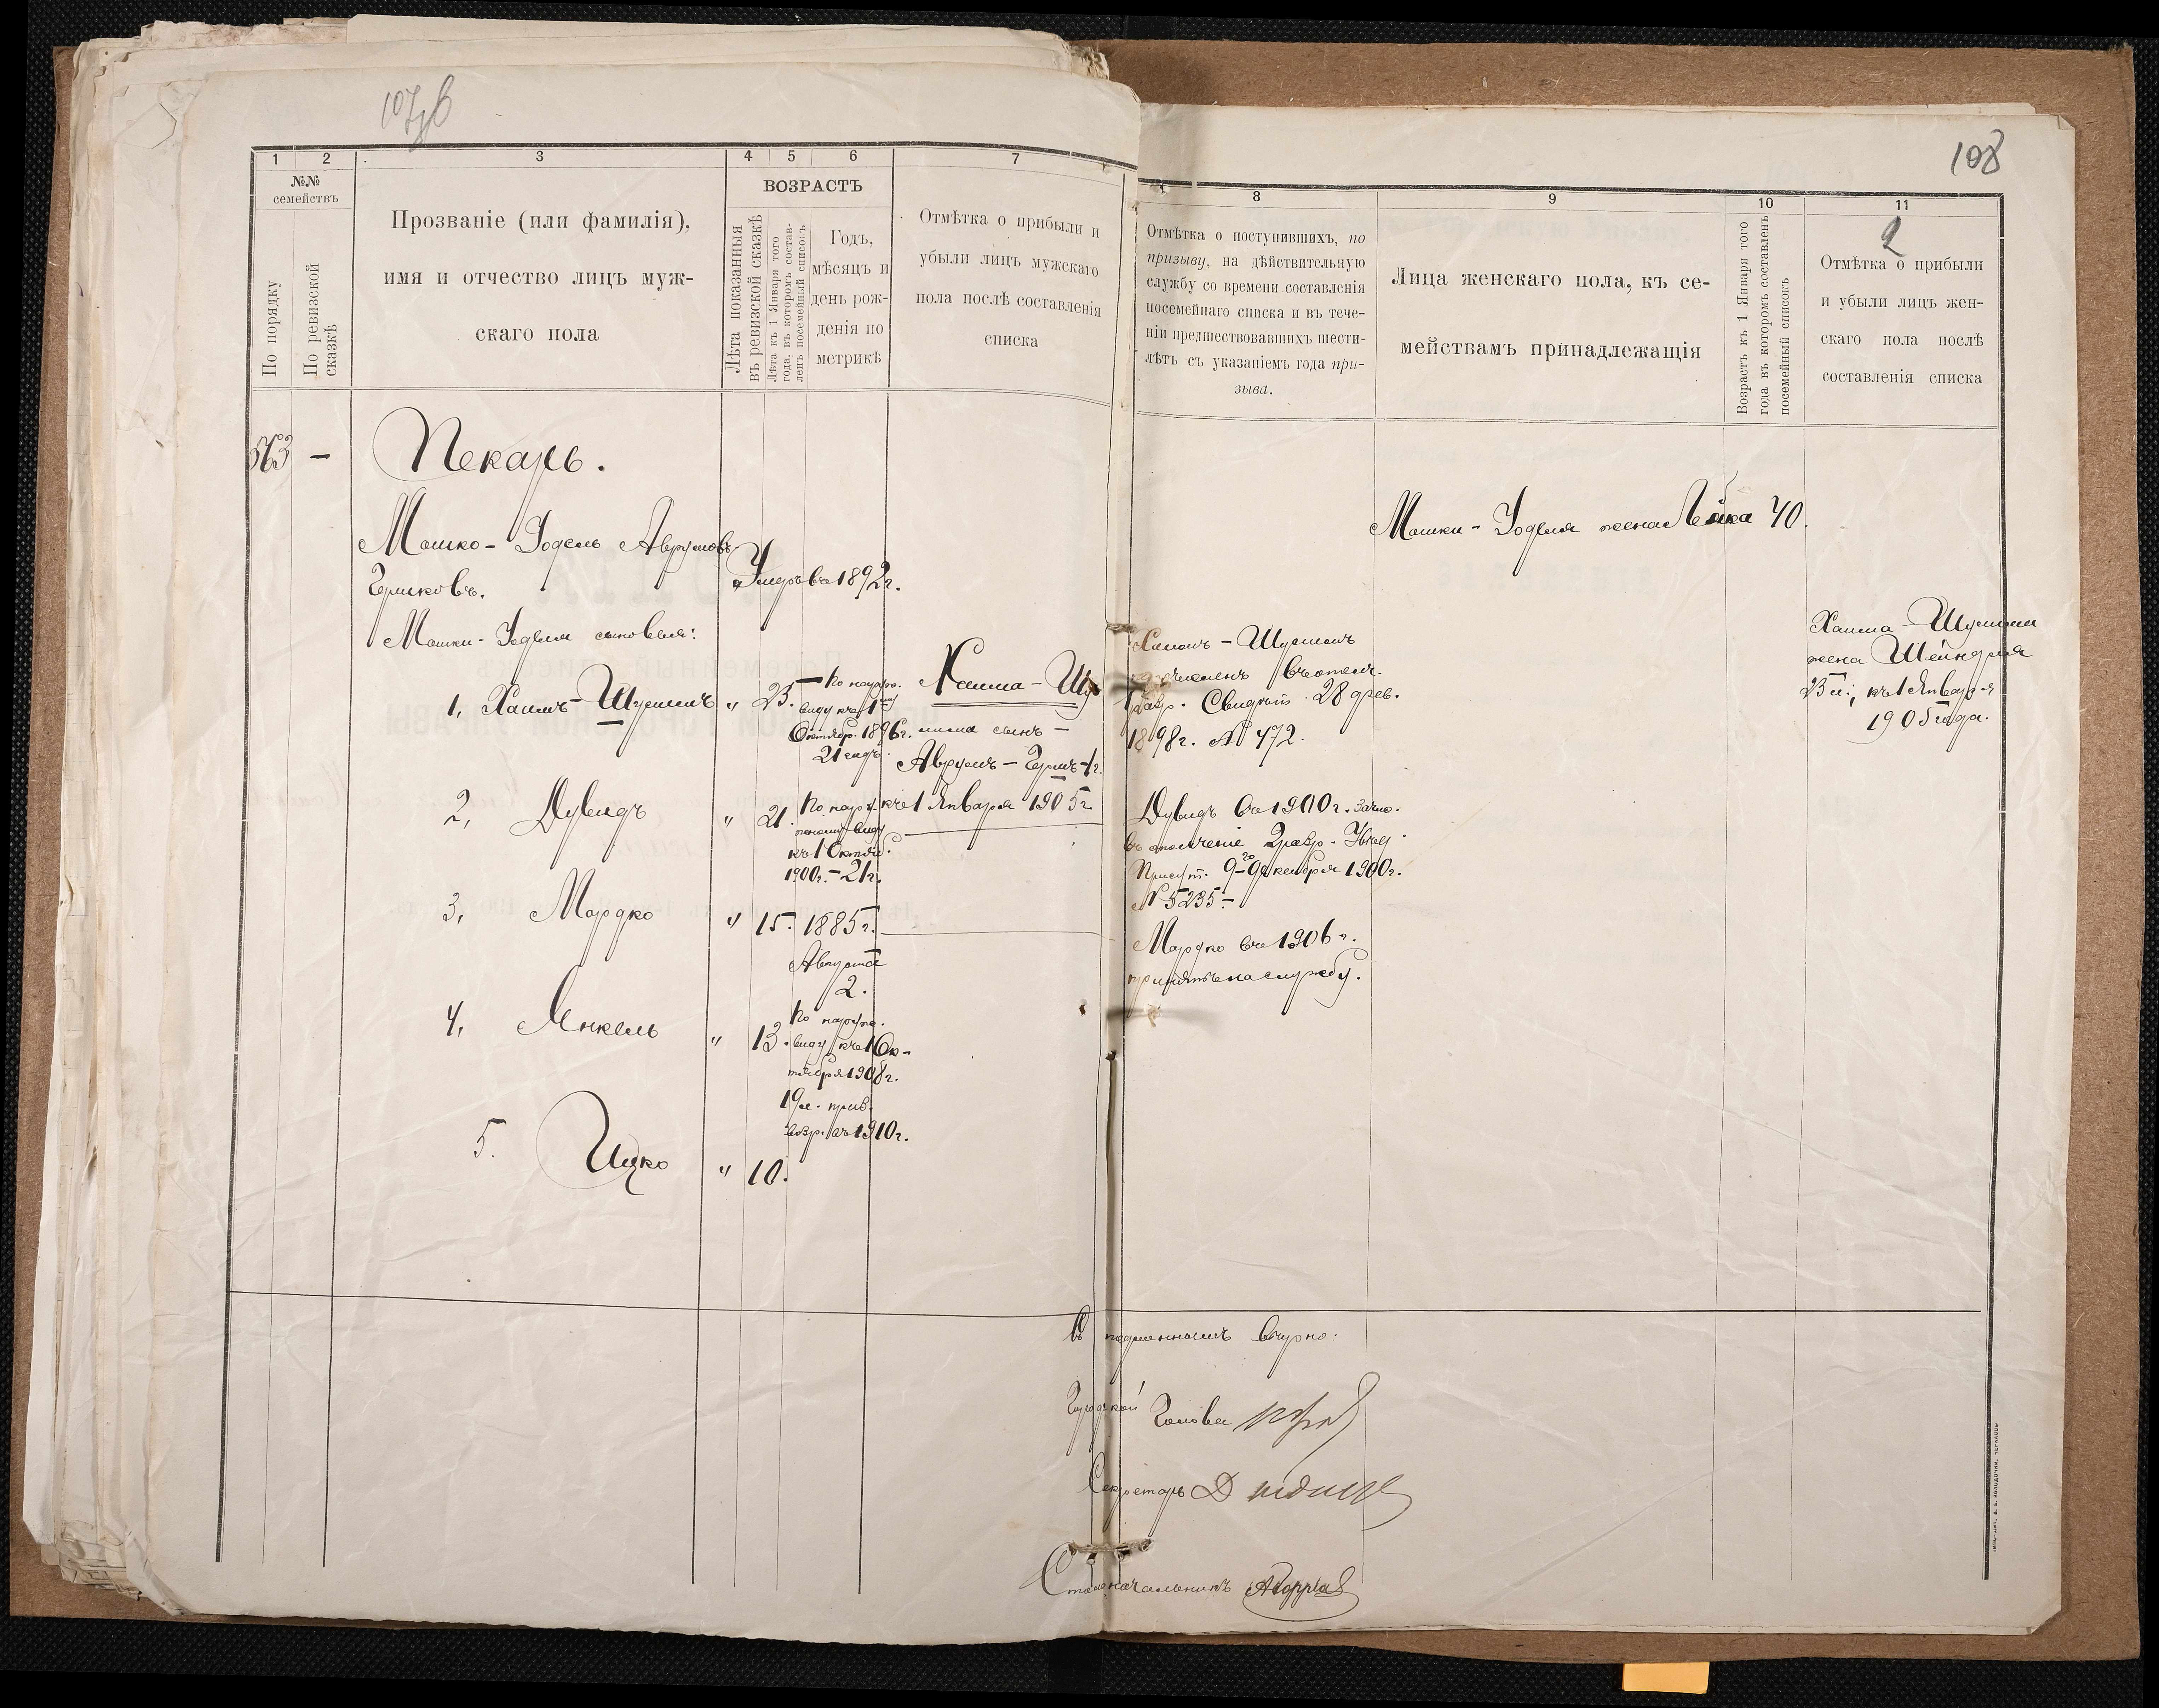 107об
108
1 2 3 4 5 6 7
№№
семействъ
По порядку
По ревизской
сказкѣ
Прозваніе (или фамилія),
имя и отчество лицъ муж-
скаго пола
ВОЗРАСТЪ
Лѣта показанныя
въ ревизской сказкѣ
Лѣта къ 1 Января того
года, въ которомъ состав-
ленъ посемейный списокъ
Годъ,
мѣсяцъ и
день рож-
денія по
метрикѣ
Отмѣтка о прибыли и
убыли лицъ мужскаго
пола послѣ составленія
списка
8 9 10 11
Отмѣтка о поступившихъ, по
призыву, на дѣйствительную
службу со времени составленія
посемейнаго списка и въ тече-
ніи предшествовавшихъ шести-
лѣтъ съ указаніемъ года при-
зыва.
Лица женскаго пола, къ се-
мействамъ принадлежащія
Возрастъ къ 1 Января того
года въ которомъ составленъ
посемейный списокъ
2
Отмѣтка о прибыли
и убыли лицъ жен-
скаго пола послѣ
составленія списка
563 — Пекарь.
Мошко-Іодель Аврумовъ
Гершковъ.
Умеръ въ 1892 г.
Мошки-Іоделя сыновья:
1, Хаимъ-Шулимъ " 23.
По наруж.
виду къ 1
Октябр. 1896 г.
21 годъ
Хаима-Шу
лима сынъ —
Аврумъ-Гершъ-1 г.
къ 1 Января 1905 г.
2, Дувидъ " 21.
По наруж
ному виду
къ 1 Октяб.
1900 г. - 21 г.
3, Мордко " 15. 1885 г.
Августа
2.
4, Янкель " 13.
По наруж.
виду къ 1 Ок-
тября 1908 г.
19 л. приз.
возр. въ 1910 г.
5. Ицко " 10.
Хаимъ-Шулимъ
зачисленъ въ ополч.
1 разр. Свидѣт. 28 фев.
1898 г. № 472.
Дувидъ въ 1900 г. зачис.
въ ополченіе 2 разр. Уѣзд.
Присут. 9-го Декабря 1900 г.
№ 5235 -
Мордко въ 1906 г.
принятъ на службу.
Мошки-Іоделя жена Лейка 40.
Хаима-Шулима
жена Шейндля
23 л., къ 1 Января
1905 года.
Съ подлиннымъ вѣрно:
Городской Голова
Секретарь
Столоначальникъ